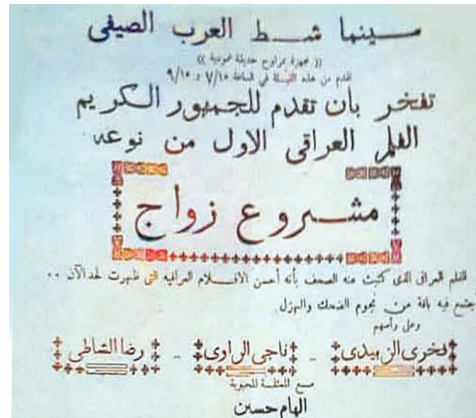 سينما شط العرب الصيفي
« مجهزة بمراوح حديثة عمودية »
تقدم من هذه الليلة في الساعة ٧/١٥ و ٩/١٥
تفخر بان تقدم للجمهور الكريم
الفلم العراقي الاول من نوعه
مشروع زواج
الفلم العراقي الذي كتبت عنه الصحف بأنه أحسن الافلام العراقية التي ظهرت لحد الآن ..
يجتمع فيه باقة من نجوم الضحك والهزل
وعلى رأسهم
فخري الزبيدي - ناجي الراوي - رضا الشاطي
مع الممثلة المحبوبة
الهام حسين